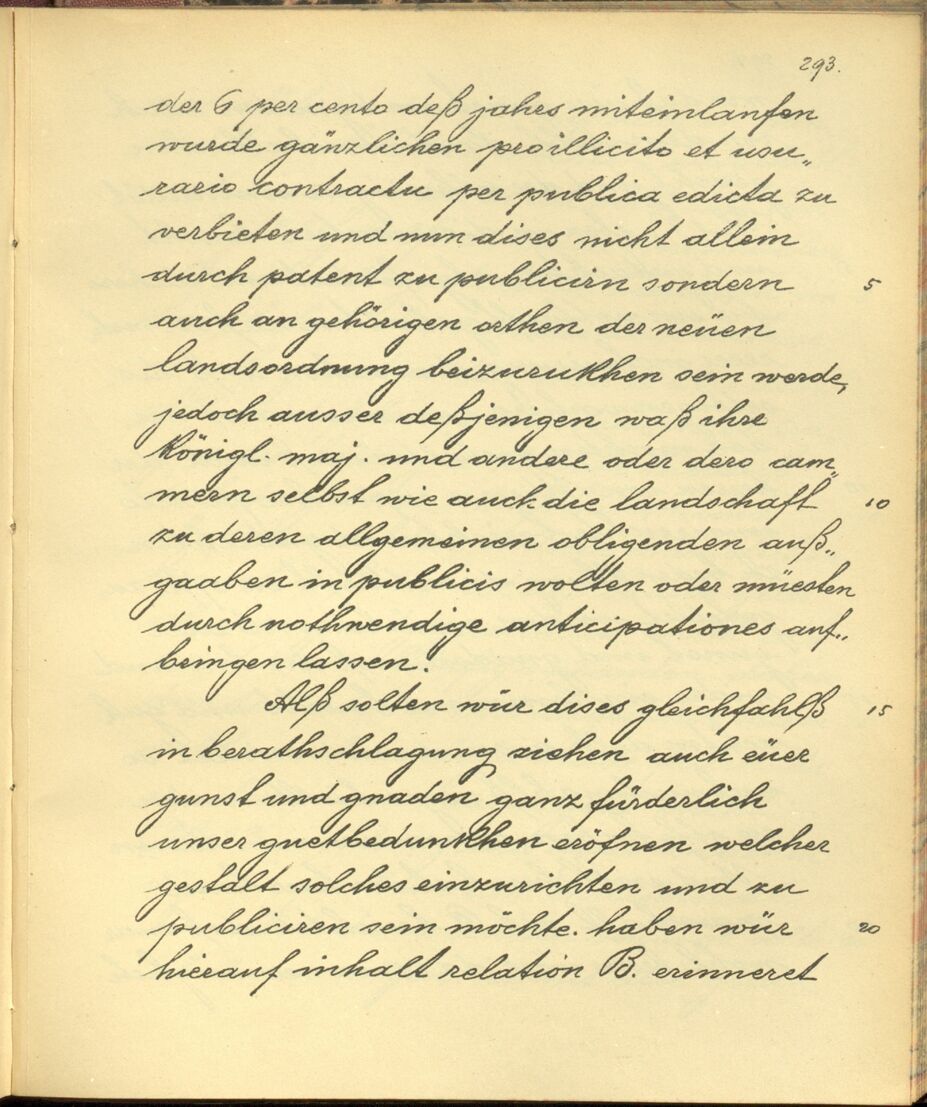 293.
der 6 per cento deß jahrs miteinlaufen
wurde gänzlichen pro illicito et usu„
rario contractu per publica edicta zu
verbieten und nun dises nicht allein
durch patent zu publicirn sondern 5
auch an gehörigen orthen der neüen
landsordnung beizurukhen sein werde,
jedoch ausser deßjenigen waß ihre
königl. maj. und andere oder dero cam„
mern selbst wie auch die landschaft 10
zu deren allgemeinen obligenden auß„
gaaben in publicis wolten oder müesten
durch nothwendige anticipationes auf„
bringen lassen.
Alß solten wür dises gleichfahlß 15
in berathschlagung ziehen auch eüer
gunst und gnaden ganz fürderlich
unser guetbedunkhen eröfnen welcher
gestalt solches einzurichten und zu
publiciren sein möchte. haben wür 20
hierauf inhalt relation B. erinneret